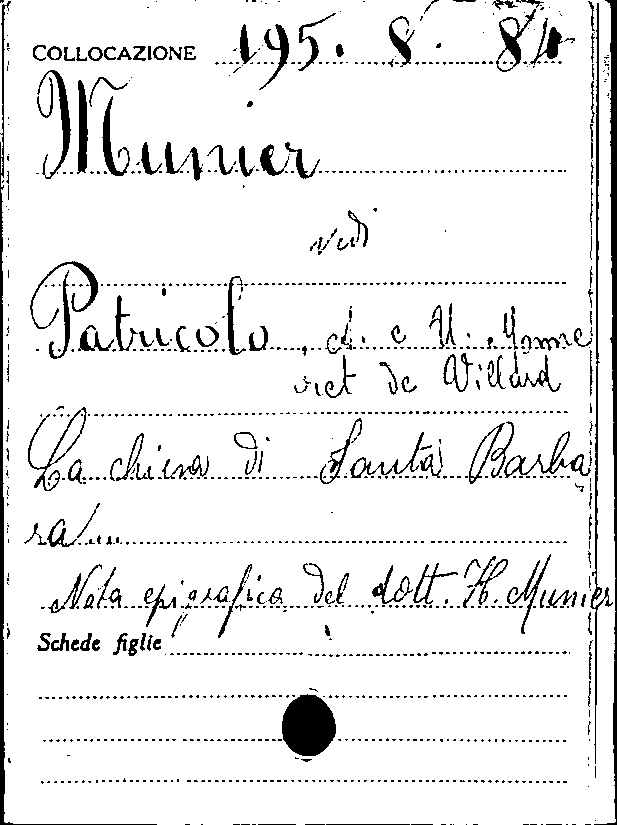 COLLOCAZIONE 195. 8. 84
Munier
vedi
Patricolo, A. e U. Monne
ret de Villard
La chiesa di Santa Barba
ra...
Nota epigrafica del dott. H. Munier
Schede figlie